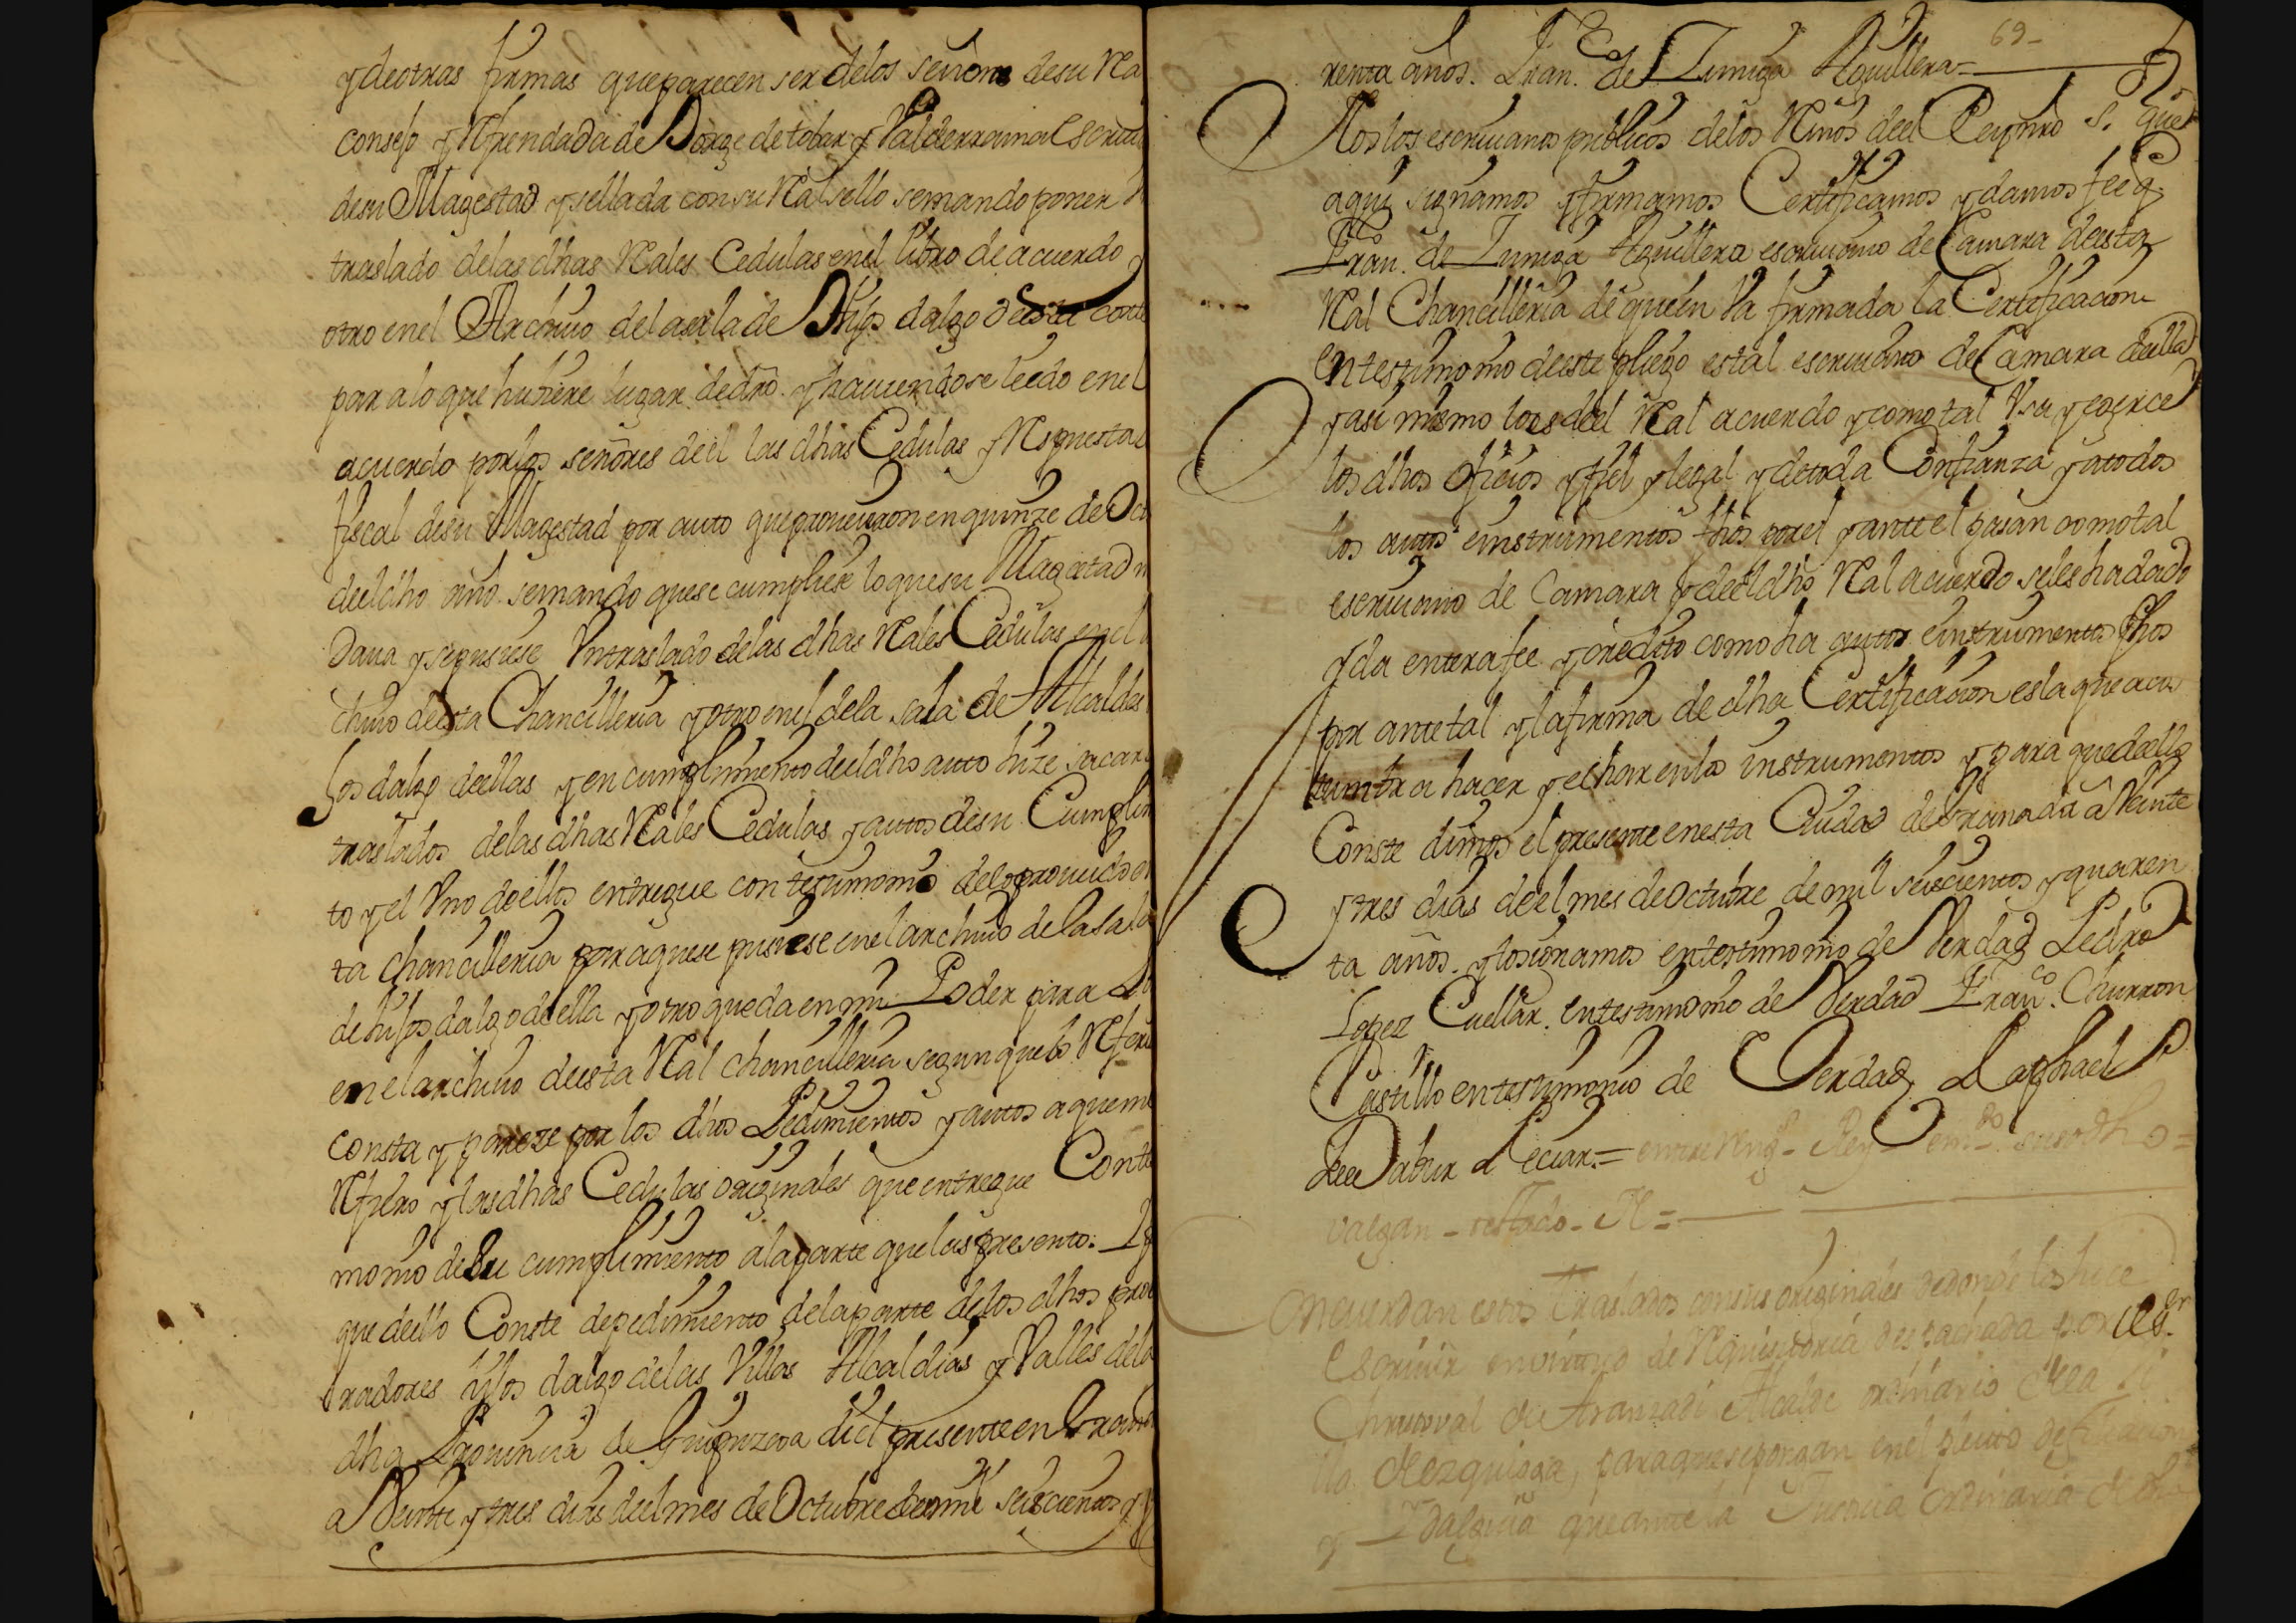 y de otras firmas que parecen ser de los señores de su Rl
consejo y Refrendada de Jorge de tobar y Valderrama Escriu
de su Magestad y sellada con su Real sello se mando poner
traslado de las dhas Rales Cedulas en el libro de acuerdo y
otro en el Archiuo de la sala de Hijos dalgo de esta corte
para lo que hubiere lugar de dro. y hauiendose leido en el
acuerdo por los señores de el las dhas Cedulas y Respuesta
fiscal de su Magestad por auto que proueieron en quinze de Oct
deel dho año se mando que se cumpliese lo que su Magestad m
daua y se pusiese Vn traslado de las dhas Rales Cedulas en el
chiuo de esta Chancilleria y otro en el de la sala de Alcaldes
Jos dalgo deellas y en cumplimiento deel dho auto hize sacar
traslados de las dhas Rales Cedulas y autos de su Cumplim
to y el Vno deellos entregue con testimonio de lo proueido
ta chancilleria para que se pusiese en el archiuo de la sala
de hijos dalgo deella y otro queda en mi Poder para
en el archiuo deesta Ral chancilleria segun que lo Refer
consta y pareze por los dhos Pedimientos y autos a que me
Refiero y las dhas Cedulas originales que entregue Con te
monio de su cumplimiento a la parte que las presento. Y p
que deello Conste de pedimiento de la parte de los dhos pro
radores hijos dalgo de las Villas Alcaldias y Valles de la
dha Prouincia de Guipuzcoa di el presente en Grana
a Veinte y tres dias deel mes de Octubre de mil seiscientos y
69-
renta años. Fran.co de Zuniga Aguillera =
Nos los escriuanos publicos de los Reinos deel Rey nro S. que
aqui signamos y firmamos Certificamos y damos fee q.
Fran.co de Zuniga Aguillera escriuano de Camara deesta
Ral Chancilleria de quien Va firmada la Certificacion
en testimonio deeste pliego es tal escriuano de Camara deella
y asi mismo lo es deel Real acuerdo y como tal Vsa y exerce
los dhos oficios y fiel y legal y de toda Confianza y a todos
los autos e instrumentos fhos por el y ante el pasan como tal
escriuano de Camara y deel dho Ral acuerdo se les ha dado
y da entera fee y credito como ha autos e instrumentos fhos
por ante tal y la firma de dha Certificacion es la que acos
tumbra hacer y echar en los instrumentos y para que deello
Conste dimos el presente en esta Ciudad de Granada a Veinte
y tres dias deel mes de Octubre de mil seiscientos y quaren
ta años. y lo signamos en testimonio de Verdad Pedro
Lopez Cuellar. en testimonio de Verdad Franco. Churron
Castillo en testimonio de Verdad Raphael
=
valgan - testado - =
Concuerdan estos traslados con sus originales de donde los hice
escriuir en virtud de Requisitoria despachada por el Sr.
Christoual de Aranzadi Alcalde ordinario de la Vi
lla de Ezquioga, para que se pongan en el pleito de filiacion
y Ydalguia que ante la Justicia ordinaria de